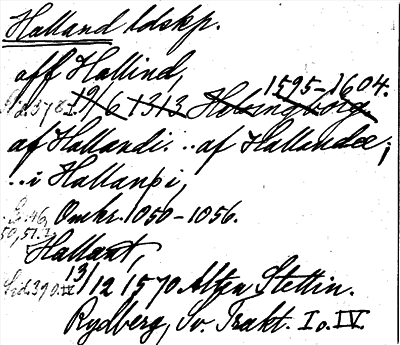 Halland ldskp.
aff Hallind,
1595-1604.
Sid. 378 I. 19/6 1313 Helsingborg
af Hallandi. .. af Hallandæ;
.. i Hallanþi,
S. 46, 50, 51. I. Omkr. 1050-1056.
Hallant,
Sid. 390. IV 13/12 1570 Alten Stettin.
Rydberg, Sv. Trakt. I o. IV.